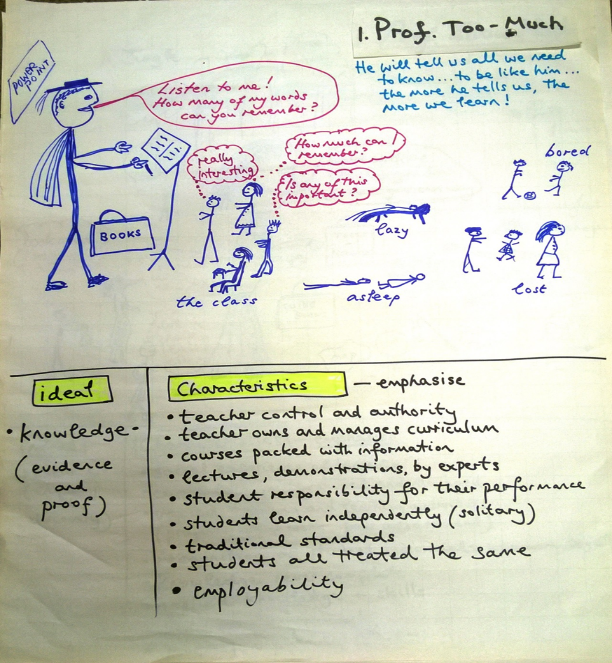 1. Prof. Too-Much
He will tell us all we need
to know... to be like him...
the more he tells us, the
more we learn!
POWER
POINT
Listen to me!
How many of my words
can you remember?
really
interesting
How much can I
remember?
Is any of this
important?
BOOKS
the class
lazy
asleep
bored
lost
ideal
• knowledge -
(evidence
and
proof)
Characteristics — emphasise
• teacher control and authority
• teacher owns and manages curriculum
• courses packed with information
• lectures, demonstrations, by experts
• student responsibility for their performance
• students learn independently (solitary)
• traditional standards
• students all treated the same
• employability